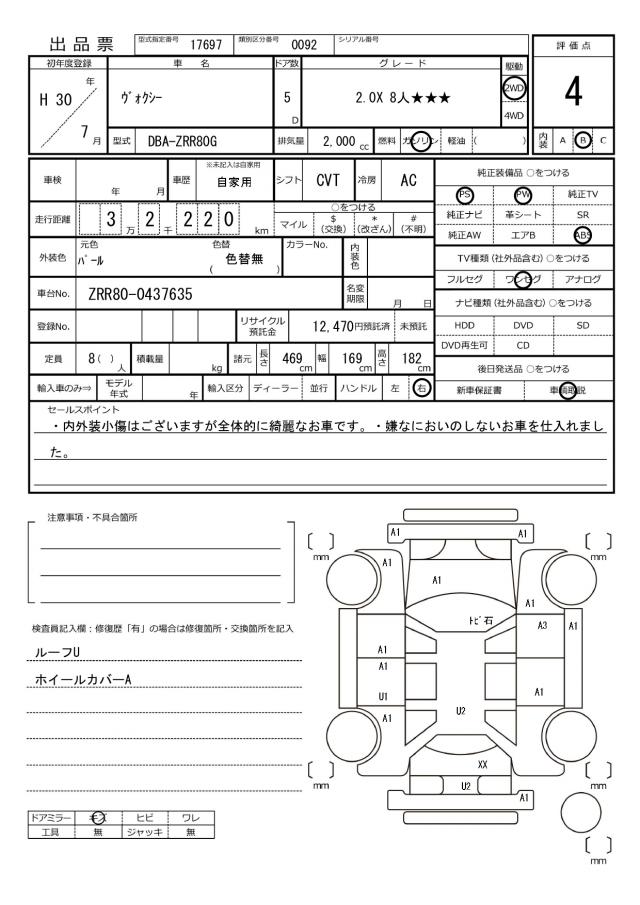 出品票
型式指定番号 17697 類別区分番号 0092 シリアル番号
評価点
4
初年度登録 車名 ドア数 グレード 駆動
H 30 年 7 月 ヴォクシー 5 D 2.0X 8人★★★ 2WD
4WD
型式 DBA-ZRR80G 排気量 2,000 cc 燃料 ガソリン 軽油 ( ) 内装 A B C
車検 年 月 車歴 ※未記入は自家用 自家用 シフト CVT 冷房 AC
純正装備品 ○をつける
PS PW 純正TV
純正ナビ 革シート SR
純正AW エアB ABS
走行距離 3 万 2 千 2 2 0 km
○をつける
マイル $ (交換) * (改ざん) # (不明)
外装色 元色 パール 色替 色替無 ( ) カラーNo. 内装色
TV種類 (社外品含む) ○をつける
フルセグ ワンセグ アナログ
車台No. ZRR80-0437635 名変期限 月 日
ナビ種類 (社外品含む) ○をつける
HDD DVD SD
DVD再生可 CD
登録No. リサイクル預託金 12,470円預託済 未預託
定員 8 ( ) 人 積載量 kg 諸元 長さ 469 cm 幅 169 cm 高さ 182 cm
後日発送品 ○をつける
新車保証書 車輌取説
輸入車のみ⇒ モデル年式 年 輸入区分 ディーラー 並行 ハンドル 左 右
セールスポイント
・内外装小傷はございますが全体的に綺麗なお車です。・嫌なにおいのしないお車を仕入れまし
た。
注意事項・不具合箇所
検査員記入欄：修復歴「有」の場合は修復箇所・交換箇所を記入
ルーフU
ホイールカバーA
ドアミラー キズ ヒビ ワレ
工具 無 ジャッキ 無
A1 A1
mm mm
A1
A1
A1
トビ石
A3 A1
A1
A1
U1 A1
U2
A1
XX
mm mm
U2
A1
mm